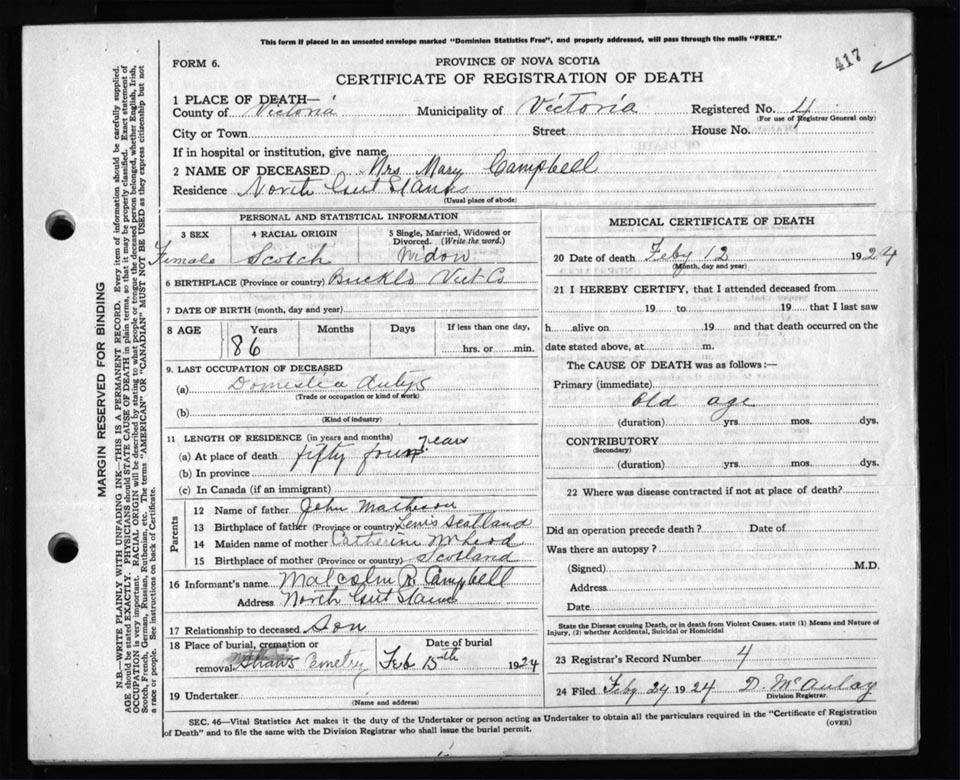 This form if placed in an unsealed envelope marked "Dominion Statistics Free", and properly addressed, will pass through the mails "FREE."
417
FORM 6.
PROVINCE OF NOVA SCOTIA
CERTIFICATE OF REGISTRATION OF DEATH
1 PLACE OF DEATH—
County of Victoria Municipality of Victoria Registered No. 4
(For use of Registrar General only)
City or Town Street House No.
If in hospital or institution, give name
2 NAME OF DECEASED Mrs Mary Campbell
Residence North Gut St Anns
(Usual place of abode)
PERSONAL AND STATISTICAL INFORMATION
3 SEX 4 RACIAL ORIGIN 5 Single, Married, Widowed or Divorced. (Write the word.)
Female Scotch Widow
6 BIRTHPLACE (Province or country) Vict Co
7 DATE OF BIRTH (month, day and year)
8 AGE Years Months Days If less than one day,
86 hrs. or min.
9. LAST OCCUPATION OF DECEASED
(a) Domestic dutys
(Trade or occupation or kind of work)
(b)
(Kind of industry)
11 LENGTH OF RESIDENCE (in years and months)
(a) At place of death fifty four years
(b) In province
(c) In Canada (if an immigrant)
Parents
12 Name of father John Matheson
13 Birthplace of father (Province or country) Lewis Scotland
14 Maiden name of mother Catherine McLeod
15 Birthplace of mother (Province or country) Scotland
16 Informant's name Malcolm R Campbell
Address North Gut St Anns
17 Relationship to deceased Son
18 Place of burial, cremation or removal Date of burial
Feb 15th 1924
19 Undertaker
(Name and address)
MEDICAL CERTIFICATE OF DEATH
20 Date of death Feby 12 1924
(Month, day and year)
21 I HEREBY CERTIFY, that I attended deceased from
19 to 19 that I last saw
h alive on 19 and that death occurred on the
date stated above, at m.
The CAUSE OF DEATH was as follows:—
Primary (immediate)
Old age
(duration) yrs. mos. dys.
CONTRIBUTORY
(Secondary)
(duration) yrs. mos. dys.
22 Where was disease contracted if not at place of death?
Did an operation precede death? Date of
Was there an autopsy?
(Signed) M.D.
Address
Date
State the Disease causing Death, or in death from Violent Causes, state (1) Means and Nature of
Injury, (2) whether Accidental, Suicidal or Homicidal
23 Registrar's Record Number 4
24 Filed Feby 24 1924 D. McAulay
Division Registrar.
SEC. 46—Vital Statistics Act makes it the duty of the Undertaker or person acting as Undertaker to obtain all the particulars required in the "Certificate of Registration
of Death" and to file the same with the Division Registrar who shall issue the burial permit.
(OVER)
MARGIN RESERVED FOR BINDING
N.B.—WRITE PLAINLY WITH UNFADING INK—THIS IS A PERMANENT RECORD. Every item of information should be carefully supplied.
AGE should be stated EXACTLY. PHYSICIANS should STATE CAUSE OF DEATH in plain terms, so that it may be properly classified. Exact statement of
OCCUPATION is very important. RACIAL ORIGIN will be described by stating to what people or tongue the deceased person belonged, whether English, Irish,
Scotch, French, German, Russian, Ruthenian, etc. The terms "AMERICAN" OR "CANADIAN" MUST NOT BE USED as they express citizenship but not
a race or people. See instructions on back of Certificate.